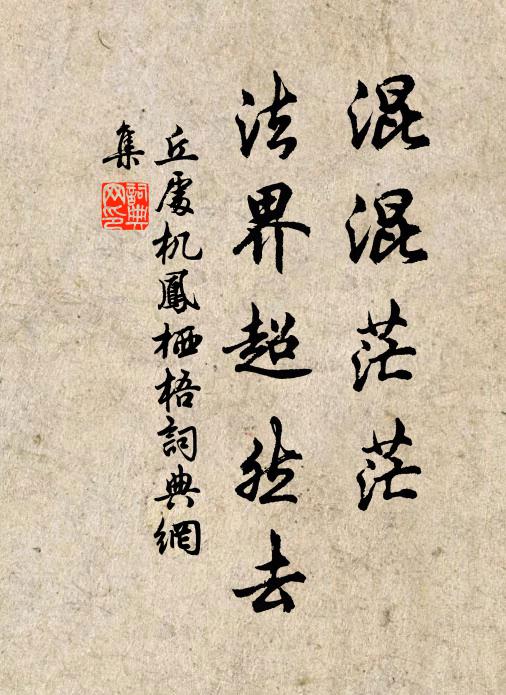 混混茫茫
法界超然去
丘處机鳳栖梧詞典網
集
詞典網印